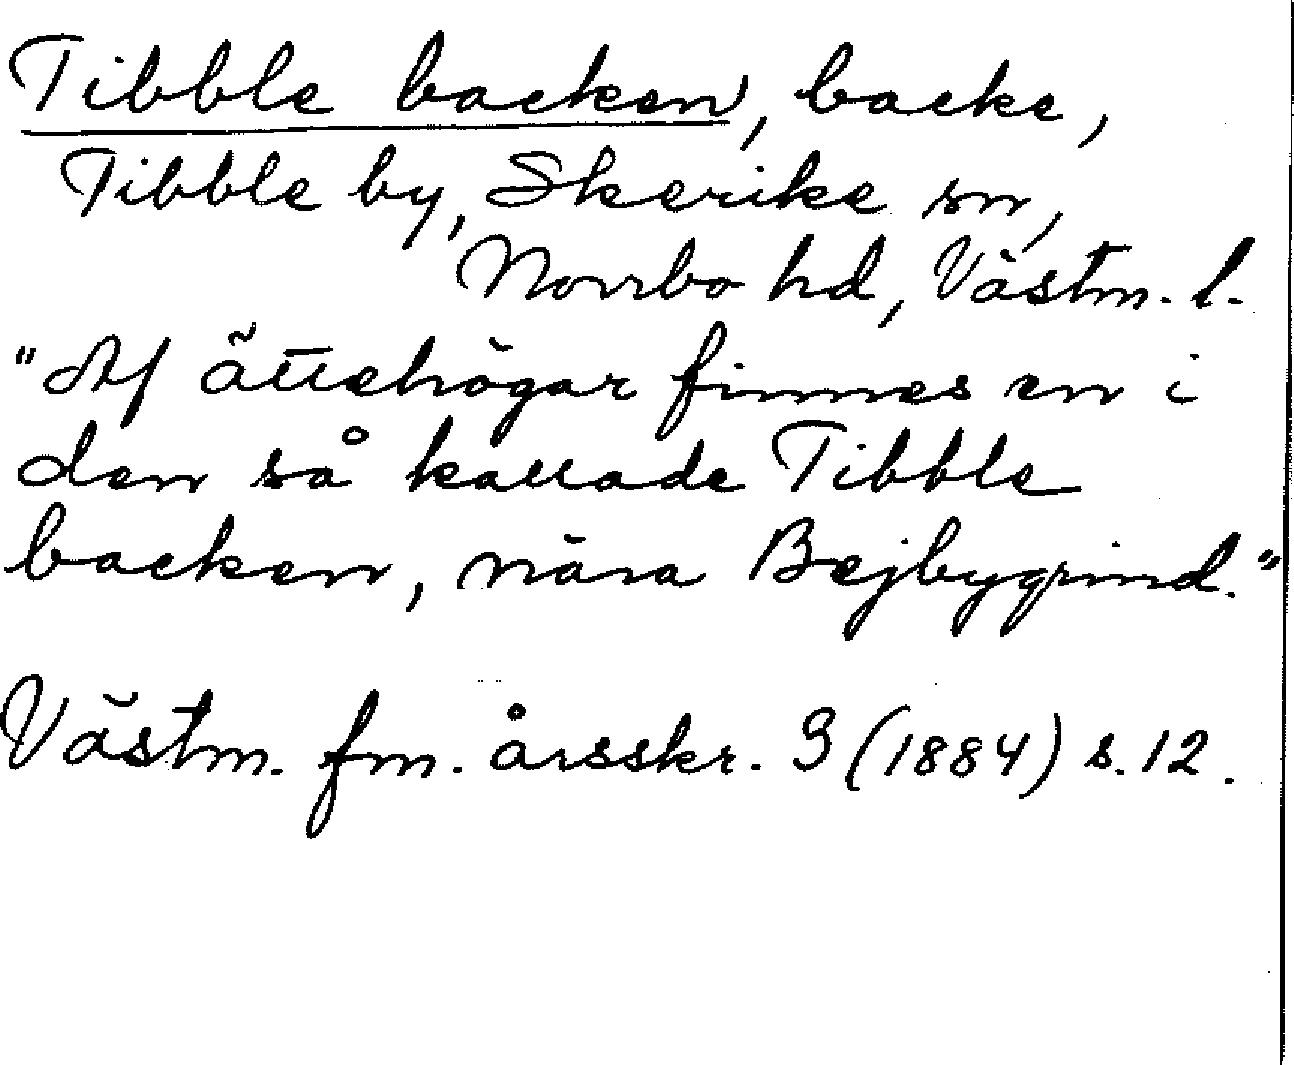 Tibble backen, backe,
Tibble by, Skerike sn,
Norrbo hd, Västm. l.
"Af ättehögar finnes en i
den så kallade Tibble
backen, nära Bejbygrind."
Västm. fm. årsskr. 3 (1884) s. 12.